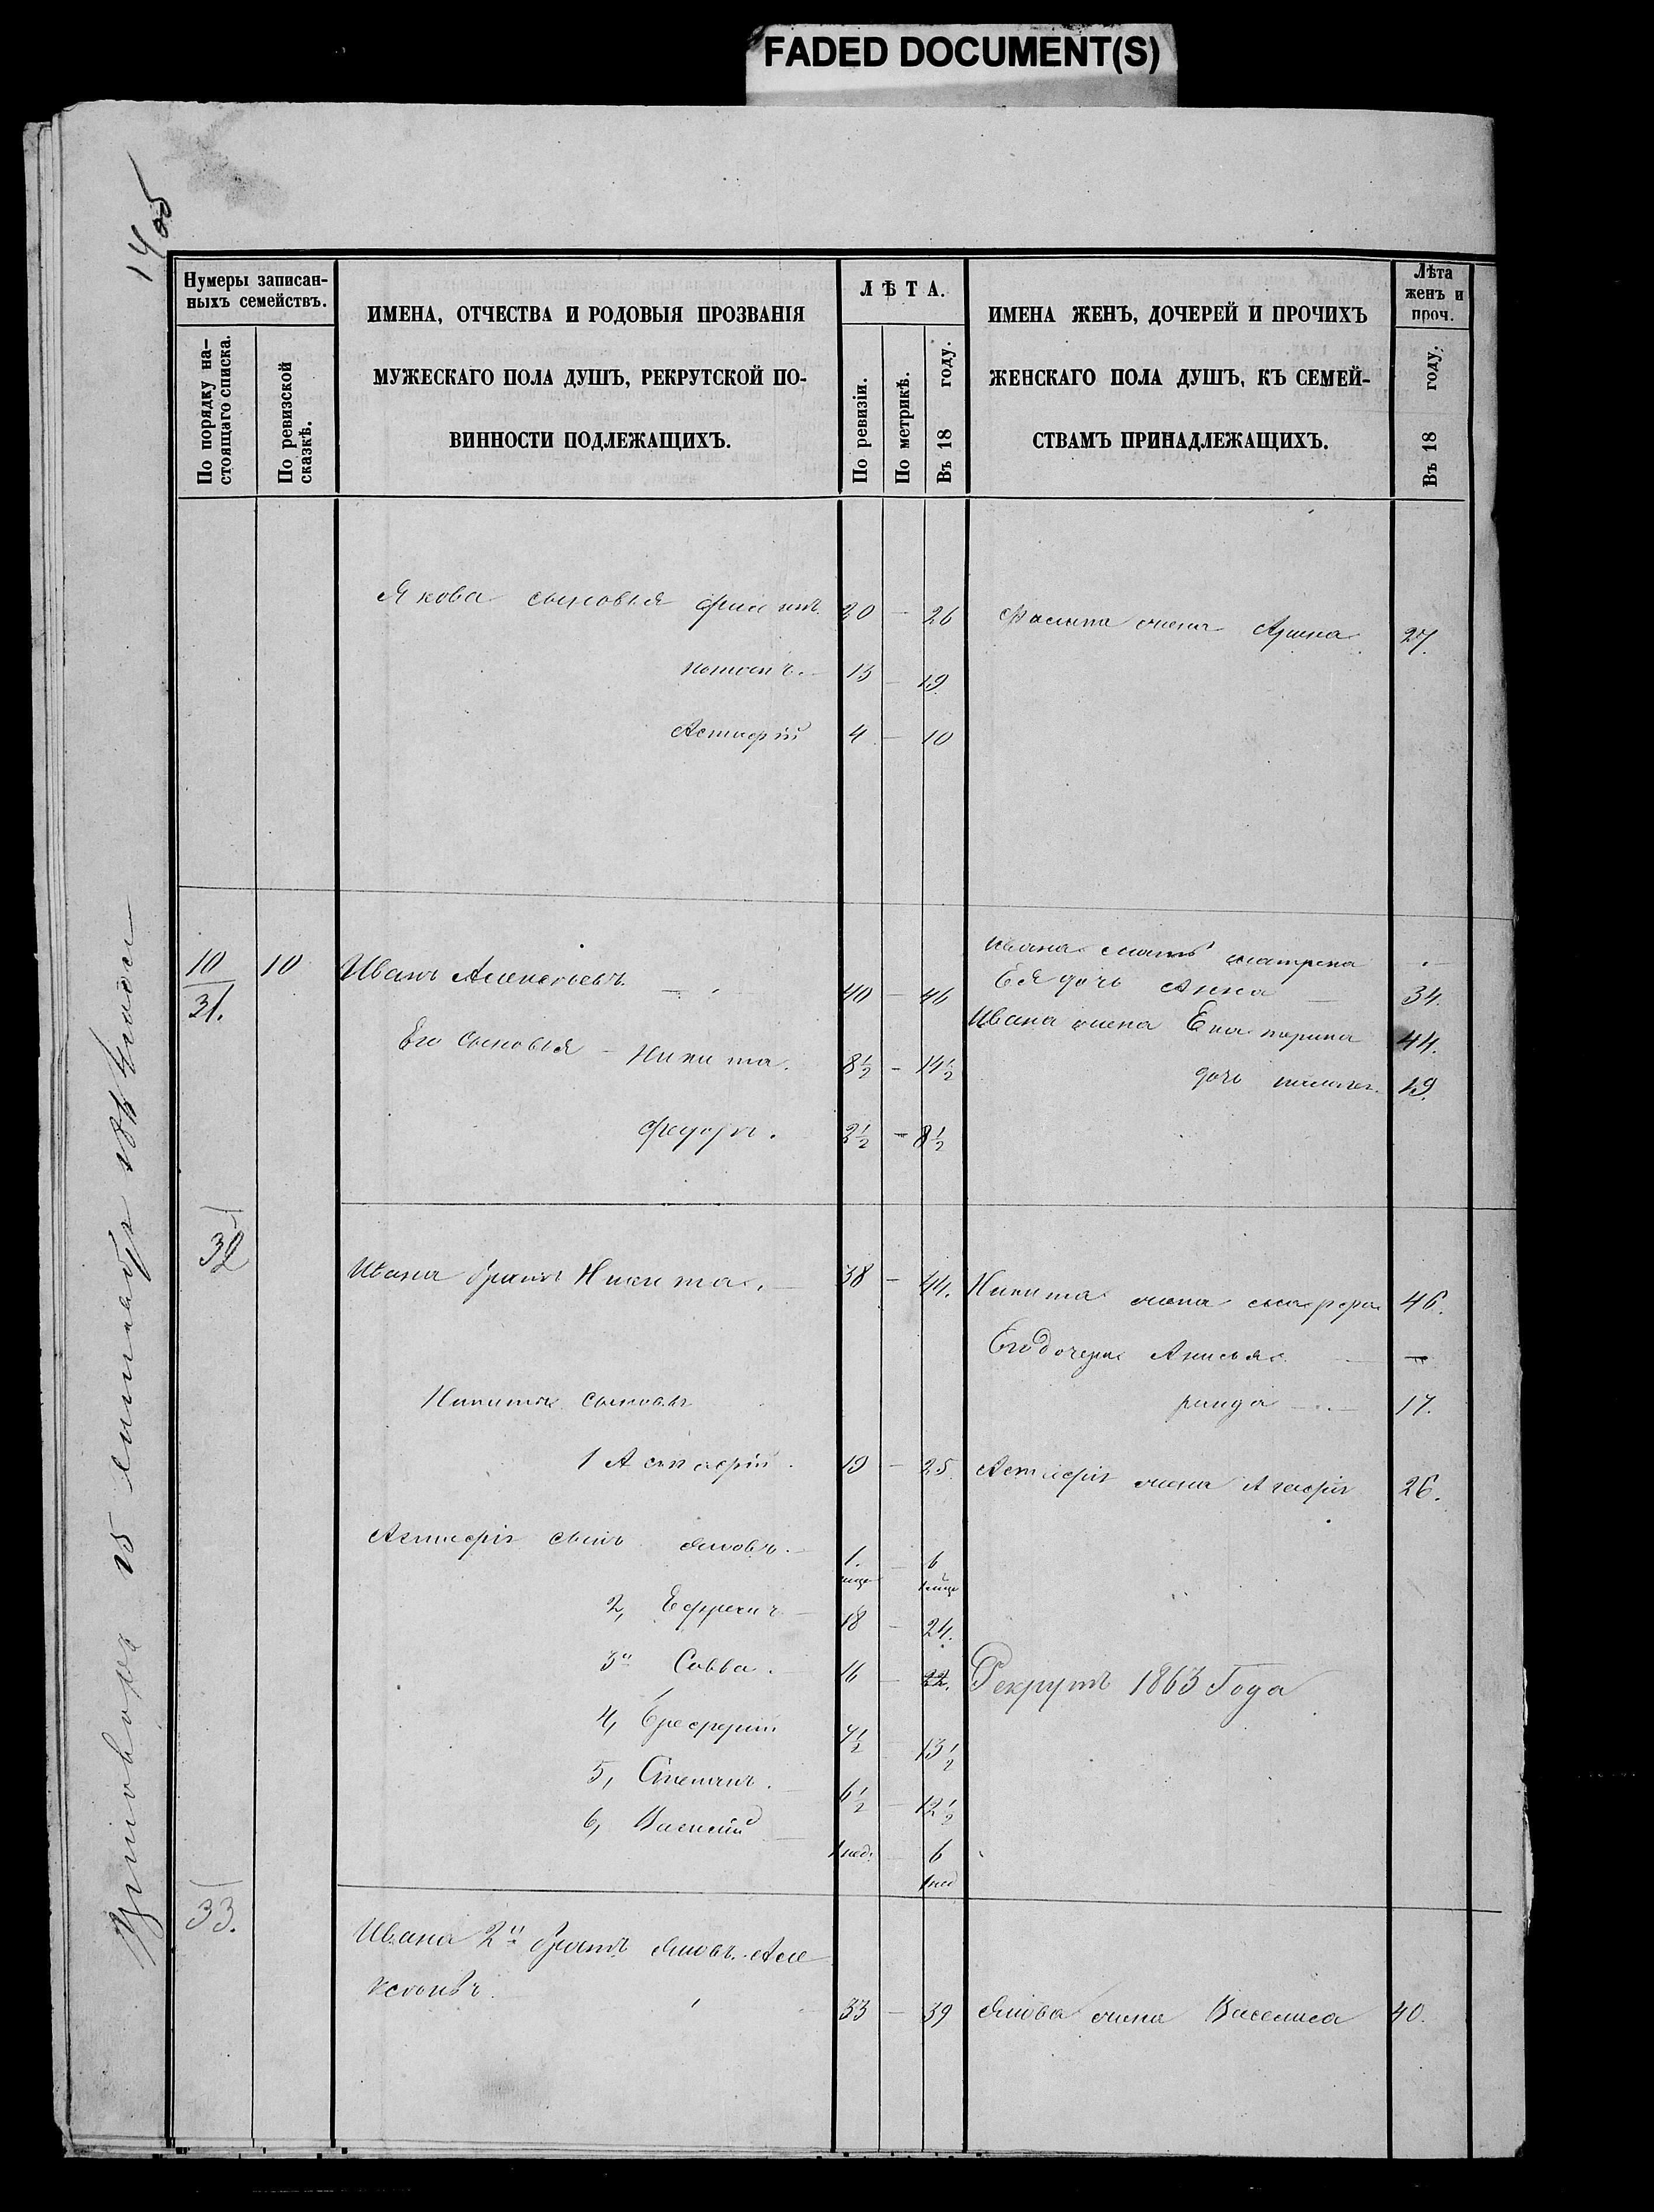 FADED DOCUMENT(S)
14 об
Нумеры записан-
ныхъ семействъ.
По порядку на-
стоящаго списка.
По ревизской
сказкѣ.
ИМЕНА, ОТЧЕСТВА И РОДОВЫЯ ПРОЗВАНІЯ
МУЖЕСКАГО ПОЛА ДУШЪ, РЕКРУТСКОЙ ПО-
ВИННОСТИ ПОДЛЕЖАЩИХЪ.
ЛѢТА.
По ревизіи.
По метрикѣ.
Въ 18 году.
ИМЕНА ЖЕНЪ, ДОЧЕРЕЙ И ПРОЧИХЪ
ЖЕНСКАГО ПОЛА ДУШЪ, КЪ СЕМЕЙ-
СТВАМЪ ПРИНАДЛЕЖАЩИХЪ.
Лѣта
женъ и
проч.
Въ 18 году.
Якова сыновья 20 – 26 жена Арина 27.
13 – 19
Астафій 4 – 10
Ивана мать матрена
10 10 Иванъ Алексѣевъ 40 – 46 Ея дочь Анна – 34.
31.
Ивана жена Екатерина 44.
Его сыновья – Никита. 8½ – 14½ дочь 19.
Федоръ. 2½ – 8½
32
Ивана братъ Никита. – 38 – 44. Никита жена 46.
Его дочери Анисья –
Никиты сыновья 17.
1 Астафій 19 – 25. Астафія жена 26.
Астафія сынъ Яковъ. – 1. – 6
2, Ефремъ – 18 – 24.
3й Савва. – 16 – 22. Рекрутъ 1863 Года
4, 7½ – 13½
5, Степанъ. – 6½ – 12½
6, 1 нед. – 6
1 нед
33.
Ивана 2й братъ Яковъ Але
ксѣевъ. 33 – 39 Якова жена Василиса 40.